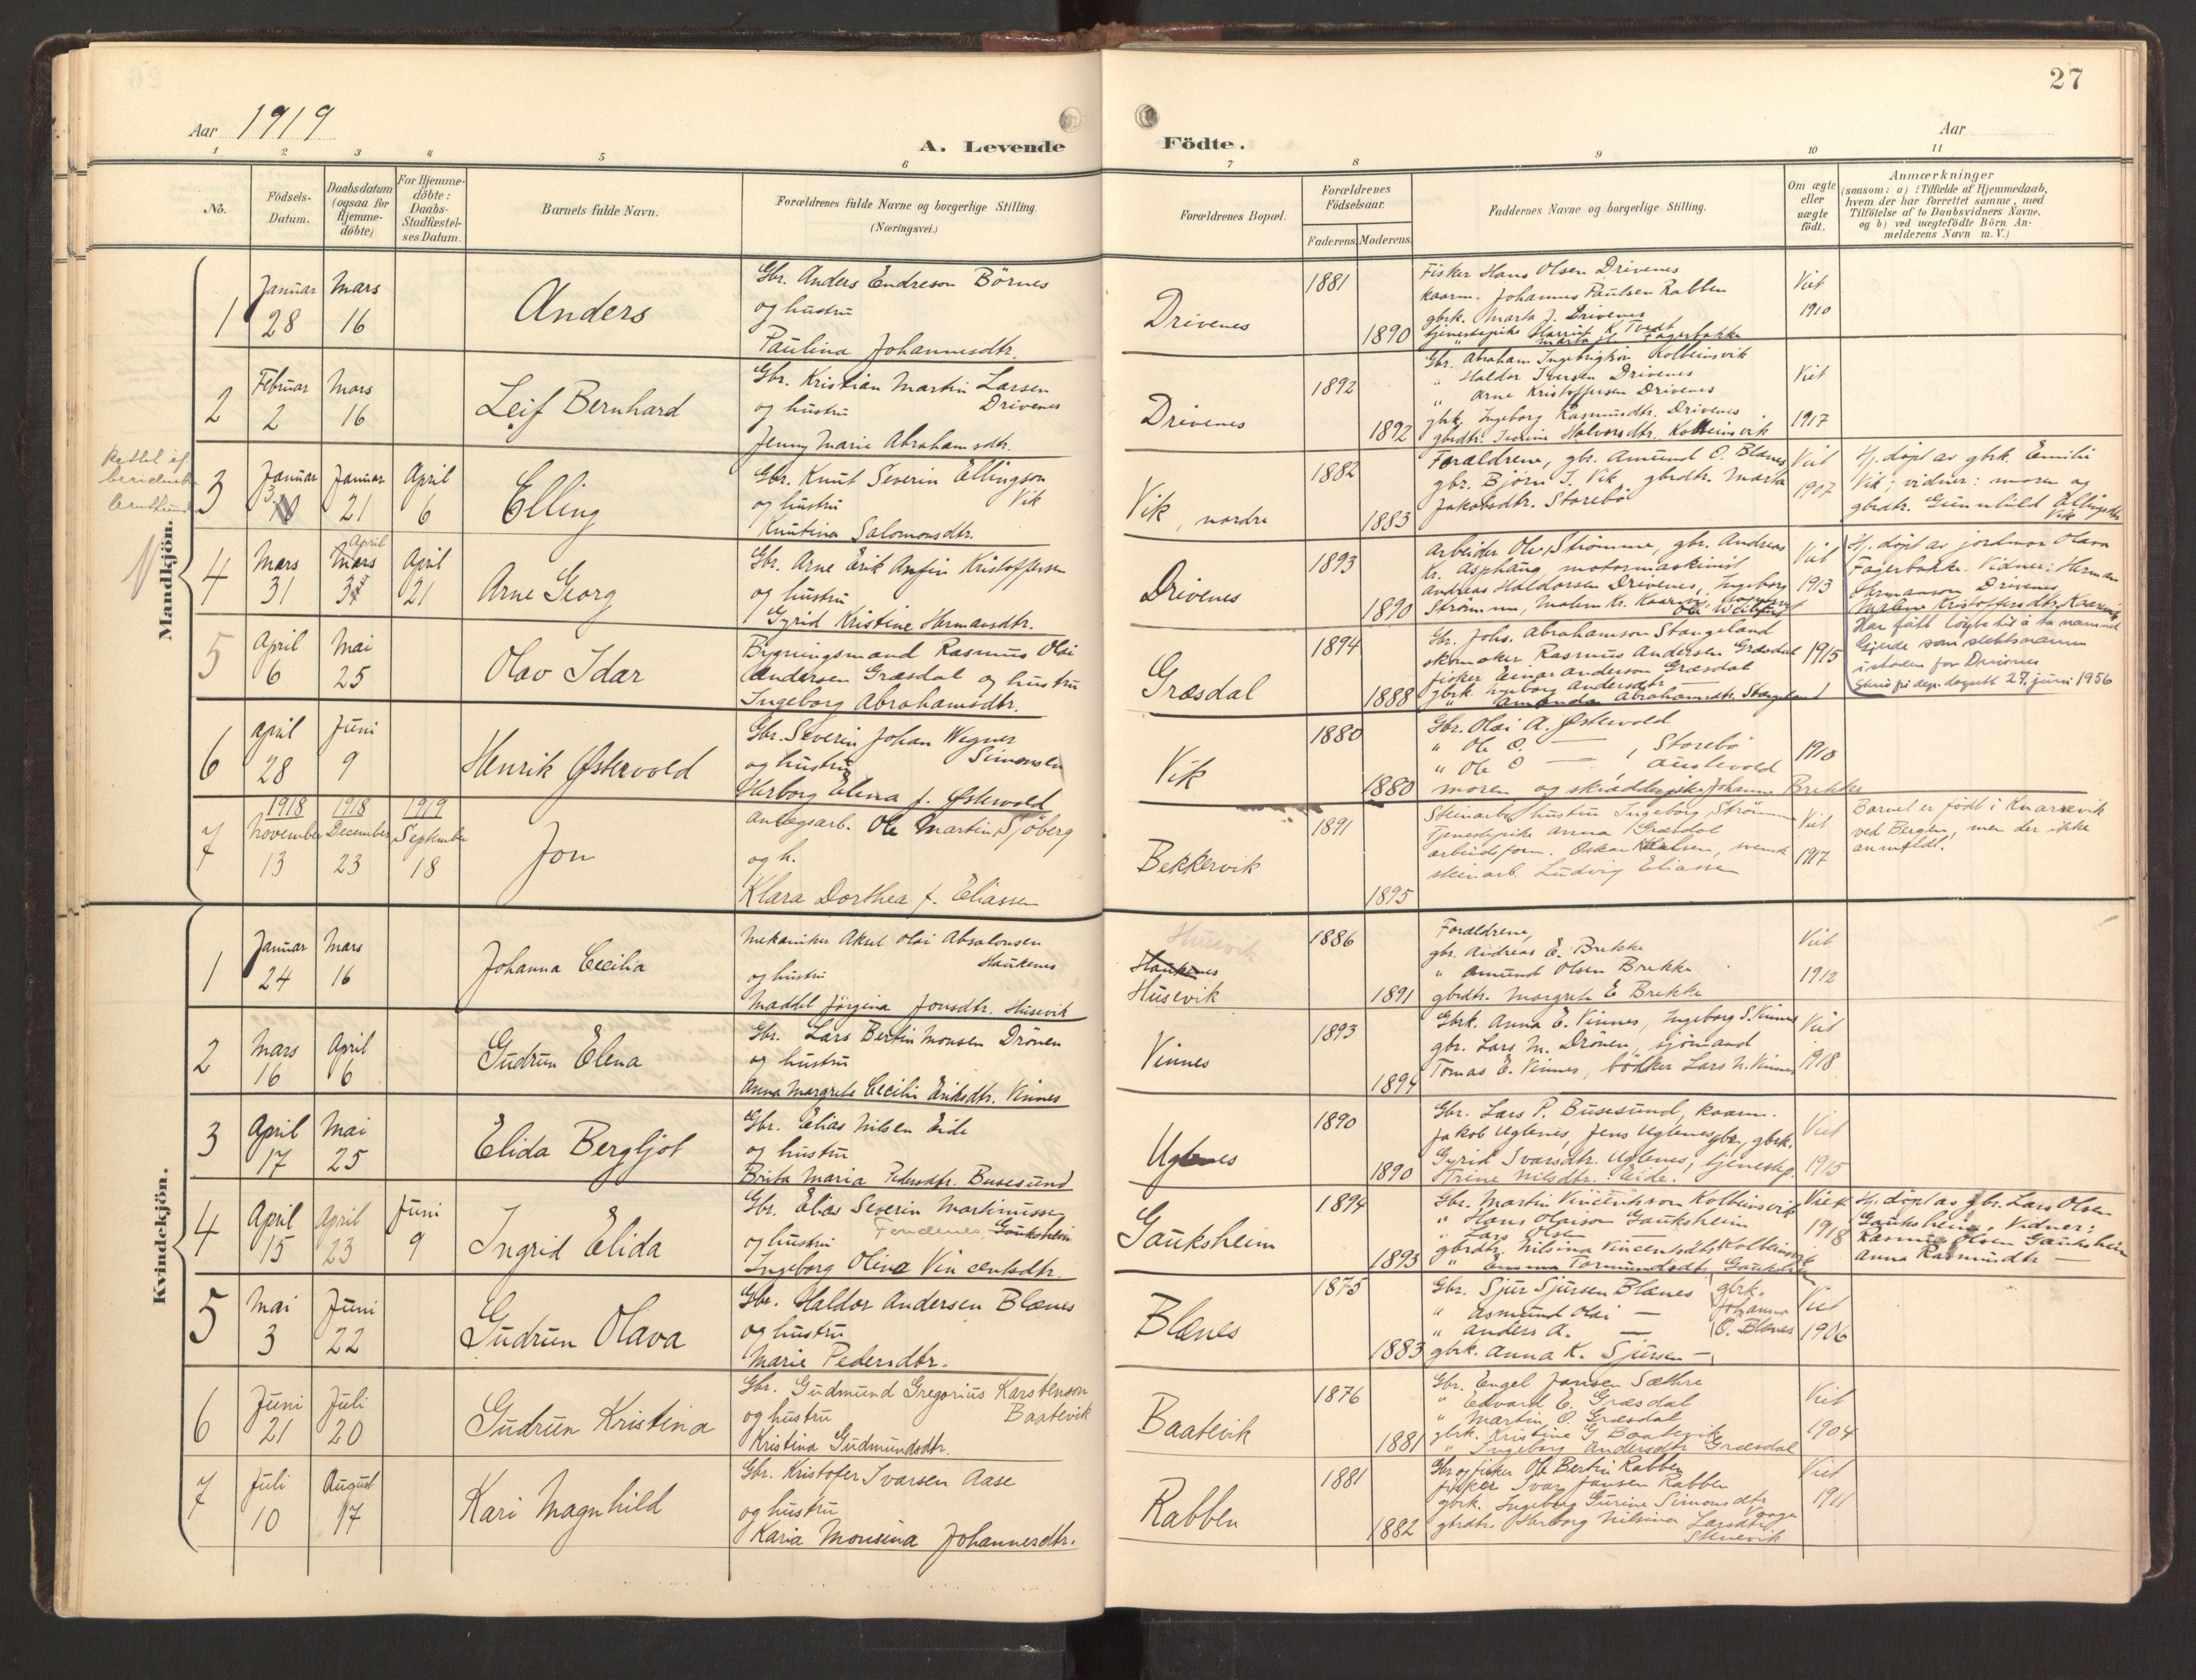 27
Aar 1919
A. Levende Födte.
Aar
1 2 3 4 5 6 7 8 9 10 11
No.
Födsels-Datum.
Daabsdatum (ogsaa for Hjemme-döbte)
For Hjemme-döbte: Daabs-Stadfæstel-ses Datum.
Barnets fulde Navn.
Forældrenes fulde Navne og borgerlige Stilling. (Næringsvei.)
Forældrenes Bopæl.
Forældrenes Födselsaar.
Faderens. Moderens.
Faddernes Navne og borgerlige Stilling.
Om ægte eller uægte födt.
Anmærkninger
(saasom: a) :Tilfælde af Hjemmedaab,
hvem der har forrettet samme, med
Tilföielse af to Daabsvidners Navne.
og b) ved uægtefödte Börn An-
melderens Navn m. V.)
Mandkjön.
1
Januar 28
Mars 16
Anders
Gbr. Anders Endreson Börnes
og hustru
Paulina Johannesdtr.
Drivenes
1881
1890
Fisker Hans Olsen Drivenes
kaarm. Johannes Paulsen Rabben
gbrk. Marta J. Drivenes
tjenestepike K. Tvedt
Fagerbakke
Viet
1910
2
Februar 2
Mars 16
Leif Bernhard
Gbr. Kristian Martin Larsen
og hustru Drivenes
Jenny Marie Abrahamsdtr.
Drivenes
1892
1892
Gbr. Abraham Ingebrigtson Kolbeinsvik
" Haldor Iversen Drivenes
" Arne Kristoffersen Drivenes
gbrk. Ingeborg Rasmusdtr. Drivenes
gbrdtr. Halvorsdtr. Kolbeinsvik
Viet
1917
3
Januar 3
Januar 21
April 6
Elling
Gbr. Knut Severin Ellingson
og hustru Vik
Knutina Salomonsdtr.
Vik, nordre
1882
1883
Forældrene, gbr. Amund O. Blænes
gbr. Björn J. Vik, gbrdtr. Marta
Jakobsdtr. Storebö
Viet
1907
Hj. döpt av gbrk. Emilie
Vik; vidner: moren og
gbrdtr. Gunnhild Ellingsdtr.
Vik
4
Mars 31
April
Mars 31
April 21
Arne Georg
Gbr. Arne Erik Anfin Kristoffersen
og hustru
Gyrid Kristine Hermansdtr.
Drivenes
1893
1890
Arbeider Ole Strömme, gbr. Andreas
Kr. Asphaug motormaskinist
Andreas Haldorsen Drivenes, Ingeborg
Strömme, Malene Kr.
Viet
1913
Hj. döpt av jordmor Olava
Fagerbakke. Vidner: Herman
Hermanson Drivenes
Malene Kristoffersdtr.
Har fått löyve til å ta namnet
Gjerde som slektsnamn
i staden for Drivenes
Skriv frå dep. dagsett 27. juni 1956
5
April 6
Mai 25
Olav Idar
Bygningsmand Rasmus Olai
Andersen Græsdal og hustru
Ingeborg Abrahamsdtr.
Græsdal
1894
1888
Gbr. Johs. Abrahamson Stangeland
skomaker Rasmus Andersen Græsdal
fisker Einar Anderson Græsdal
gbrk. Ingeborg Andersdtr
" Amanda Abrahamsdtr. Stangeland
1915
6
April 28
Juni 9
Henrik Østervold
Gbr. Severin Johan Wegner
og hustru Simonsen
Herborg Elena f. Østervold
Vik
1880
1880
Gbr. Olai A. Østervold
" Ole O. — , Storebö
" Ole O — , Austevold
moren og skrædderpike Johanna Brekke
1910
7
1918
November 13
1918
December 23
1919
September 18
Jon
Anlægsarb. Ole Martin Sjöberg
og h.
Klara Dorthea f. Eliassen
Bekkervik
1891
1895
Steinarb. hustru Ingeborg Strömme
Tjenestepike Anna Græsdal
arbeidsform. Oskar Karlsen, svensk
steinarb. Ludvig Eliassen
Viet
1917
Barnet er födt i Knarrevik
ved Bergen, men der ikke
anmeldt.
Kvindekjön.
1
Januar 24
Mars 16
Johanna Cecilia
Mekaniker Aksel Olai Absalonsen
og hustru Haukenes
Maddel Jörgina Jonsdtr. Husevik
Husevik
Haukenes
Husevik
1886
1891
Forældrene,
gbr. Andreas E. Brekke
" Amund Olsen Brekke
gbrdtr. Margrete E Brekke
Viet
1912
2
Mars 16
April 6
Gudrun Elena
Gbr. Lars Bertin Monsen Drönen
og hustru
Anna Margrete Cecilie Eriksdtr. Vinnes
Vinnes
1893
1894
Gbrk. Anna E. Vinnes, Ingeborg S. Vinnes
gbr. Lars M. Drönen, sjömand
Tomas E. Vinnes, bökker Lars N. Vinnes
Viet
1918
3
April 17
Mai 25
Elida Bergljot
Gbr. Elias Nilsen Eide
og hustru
Brita Maria Pedersdtr. Busesund
Uglenes
1890
1890
Gbr. Lars P. Busesund, kaarm.
Jakob Uglenes, Jens Uglenes gbr, gbrk.
Gyrid Ivarsdtr. Uglenes, tjenestep.
Trine Nilsdtr. Eide.
Viet
1915
4
April 15
April 23
Juni 9
Ingrid Elida
Gbr. Elias Severin Martinussen
og hustru Gauksheim
Ingeborg Olina Vincentsdtr.
Gauksheim
1894
1893
Gbr. Martin Vincentson Kolbeinsvik
" Hans Olaison Gauksheim
" Lars Olsen —
gbrdtr. Nilsina Vincentsdtr Kolbeinsvik
" Emma Tormundsdtr. Gauksheim
Viet
1918
Hj. döpt av gbr. Lars Olsen
Gauksheim, Vidner:
Rasmus Olsen Gauksheim
Anna Rasmusdtr —
5
Mai 3
Juni 22
Gudrun Olava
Gbr. Haldor Andersen Blænes
og hustru
Marie Pedersdtr.
Blænes
1875
1883
Gbr. Sjur Sjursen Blænes gbrk.
" Asmund Olai — Johanna
" Anders A. — O. Blænes
gbrk. Anna K. Sjursen —
Viet
1906
6
Juni 21
Juli 20
Gudrun Kristina
Gbr. Gudmund Gregorius Karstenson
og hustru Baatevik
Kristina Gudmundsdtr.
Baatevik
1876
1881
Gbr. Engel Jansen Sæthre
" Edvard E. Græsdal
" Martin O. Græsdal
gbrk. Kristine G. Baatevik
" Ingeborg Andersdtr Græsdal
Viet
1904
7
Juli 10
August 17
Kari Magnhild
Gbr. Kristofer Ivarsen Aase
og hustru
Karia Monsina Johannesdtr.
Rabben
1881
1882
Gbr og fisker Ole Bertin Rabben
fisker Ivar Jansen Rabben
gbrk. Ingeborg Gurine Simonsdtr
gbrdtr. Herborg Nilsina Larsdtr.
Stenevik
Viet
1911